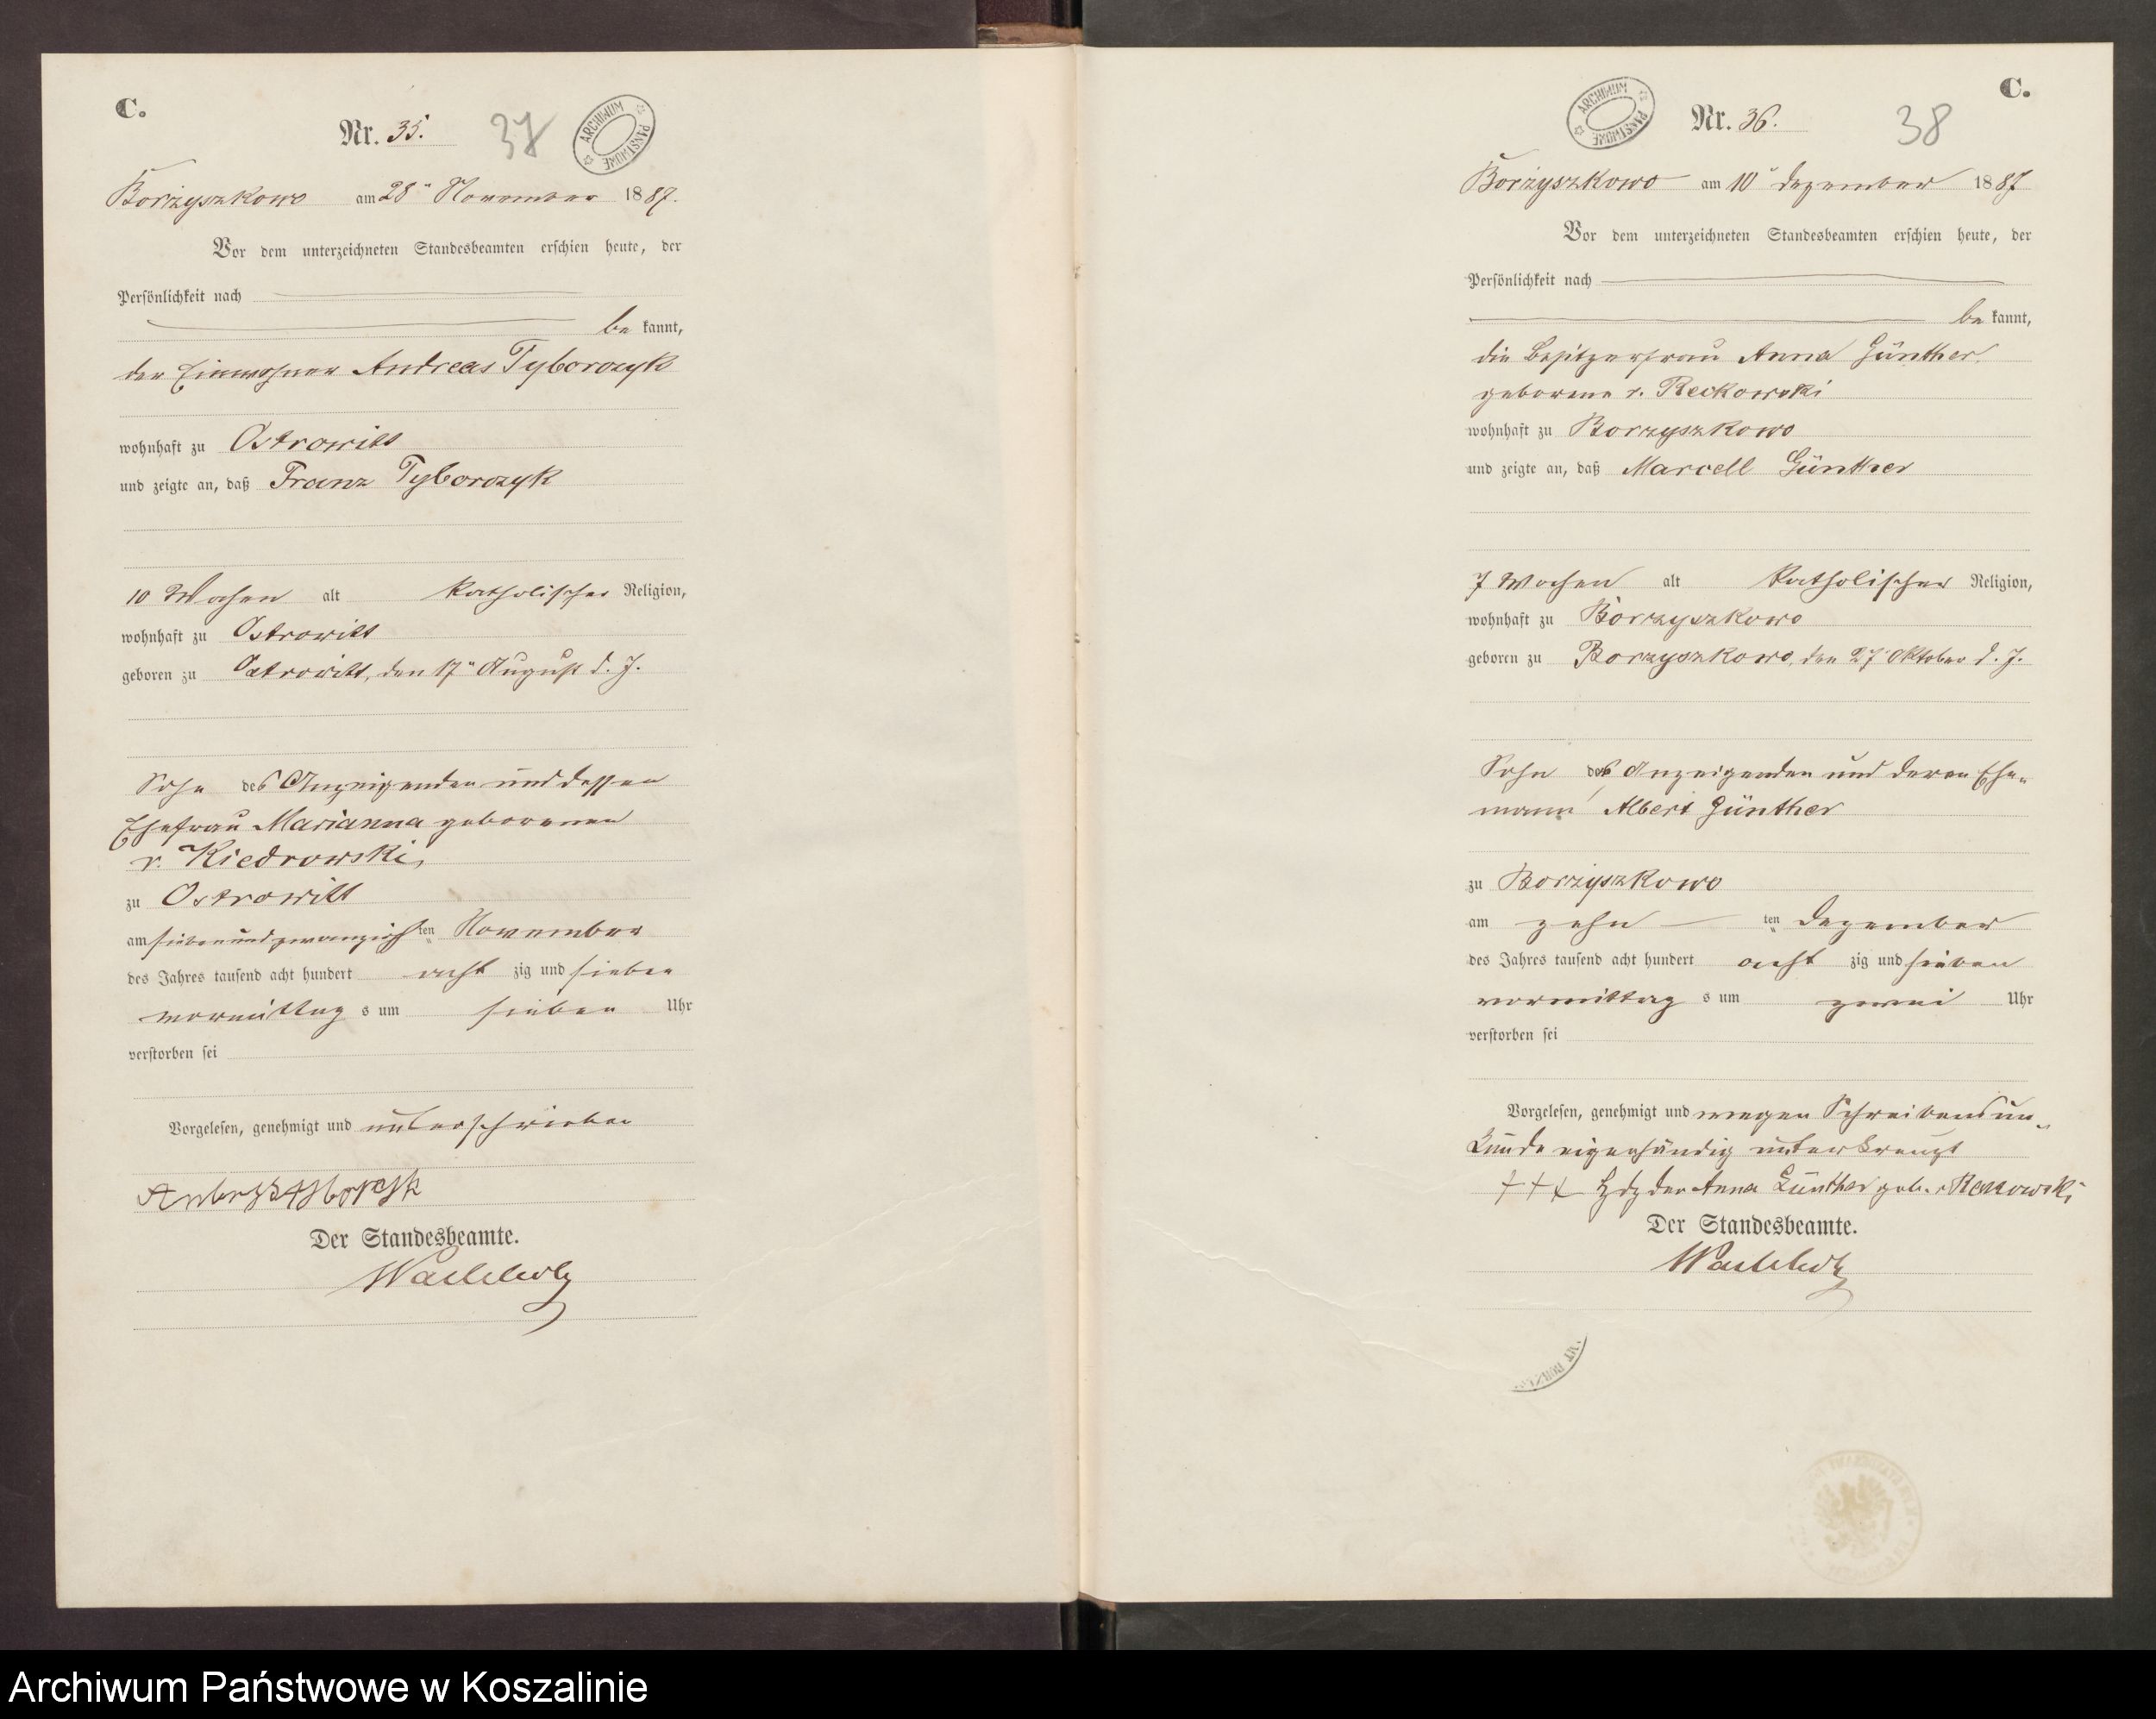 C.
Nr. 35.
37
ARCHIWUM PAŃSTWOWE
Borzyszkowo am 28" November 1887.
Vor dem unterzeichneten Standesbeamten erschien heute, der
Persönlichkeit nach
be kannt,
der Einwohner Andreas Tyborczyk
wohnhaft zu Ostrowitt
und zeigte an, daß Franz Tyborczyk
10 Wochen alt katholischer Religion,
wohnhaft zu Ostrowitt
geboren zu Ostrowitt, den 17" August d. J.
Sohn des Anzeigenden und dessen
Ehefrau Marianna geborenen
v. Kiedrowski,
zu Ostrowitt
am siebenundzwanzigsten November
des Jahres tausend acht hundert acht zig und sieben
vormittag s um sieben Uhr
verstorben sei
Vorgelesen, genehmigt und unterschrieben
Der Standesbeamte.
C.
ARCHIWUM PAŃSTWOWE
Nr. 36.
38
Borzyszkowo am 10" Dezember 1887
Vor dem unterzeichneten Standesbeamten erschien heute, der
Persönlichkeit nach
be kannt,
die Besitzerfrau Anna Günther
geborene v. Reckowski
wohnhaft zu Borzyszkowo
und zeigte an, daß Marcell Günther
7 Wochen alt katholischer Religion,
wohnhaft zu Borzyszkowo
geboren zu Borzyszkowo, den 27" Oktober d. J.
Sohn der Anzeigenden und deren Ehe-
mann Albert Günther
zu Borzyszkowo
am zehn ten Dezember
des Jahres tausend acht hundert acht zig und sieben
vormittag s um zwei Uhr
verstorben sei
Vorgelesen, genehmigt und wegen Schreibensun-
kunde eigenhändig unterkreuzt
+++ Hdz der Anna Günther geb. v Reckowski
Der Standesbeamte.
Archiwum Państwowe w Koszalinie